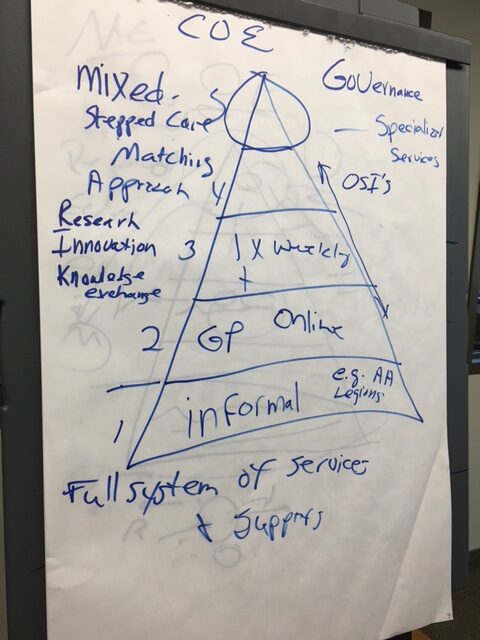 COE
Governance
Mixed - 5
Stepped Care
Specialized
Services
Matching
Approach 4
OSI's
Research
Innovation 3
1 x Weekly
+
Knowledge
exchange
2 GP Online
1 informal
e.g. AA
Legions
Full system of services
+ Supports